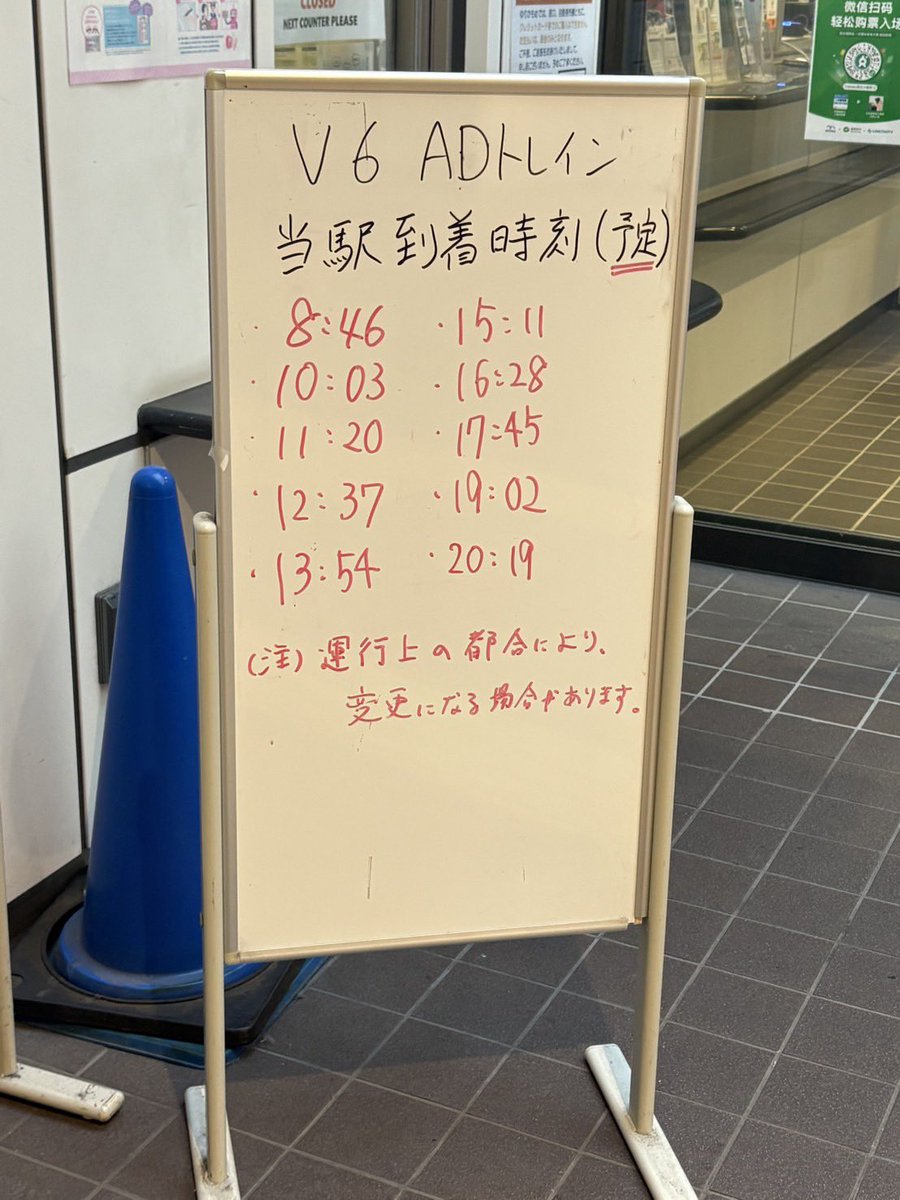 CLOSED
NEXT COUNTER PLEASE
微信扫码
轻松购票入场
V6 ADトレイン
当駅到着時刻(予定)
・8:46 ・15:11
・10:03 ・16:28
・11:20 ・17:45
・12:37 ・19:02
・13:54 ・20:19
(注)運行上の都合により、
変更になる場合があります。